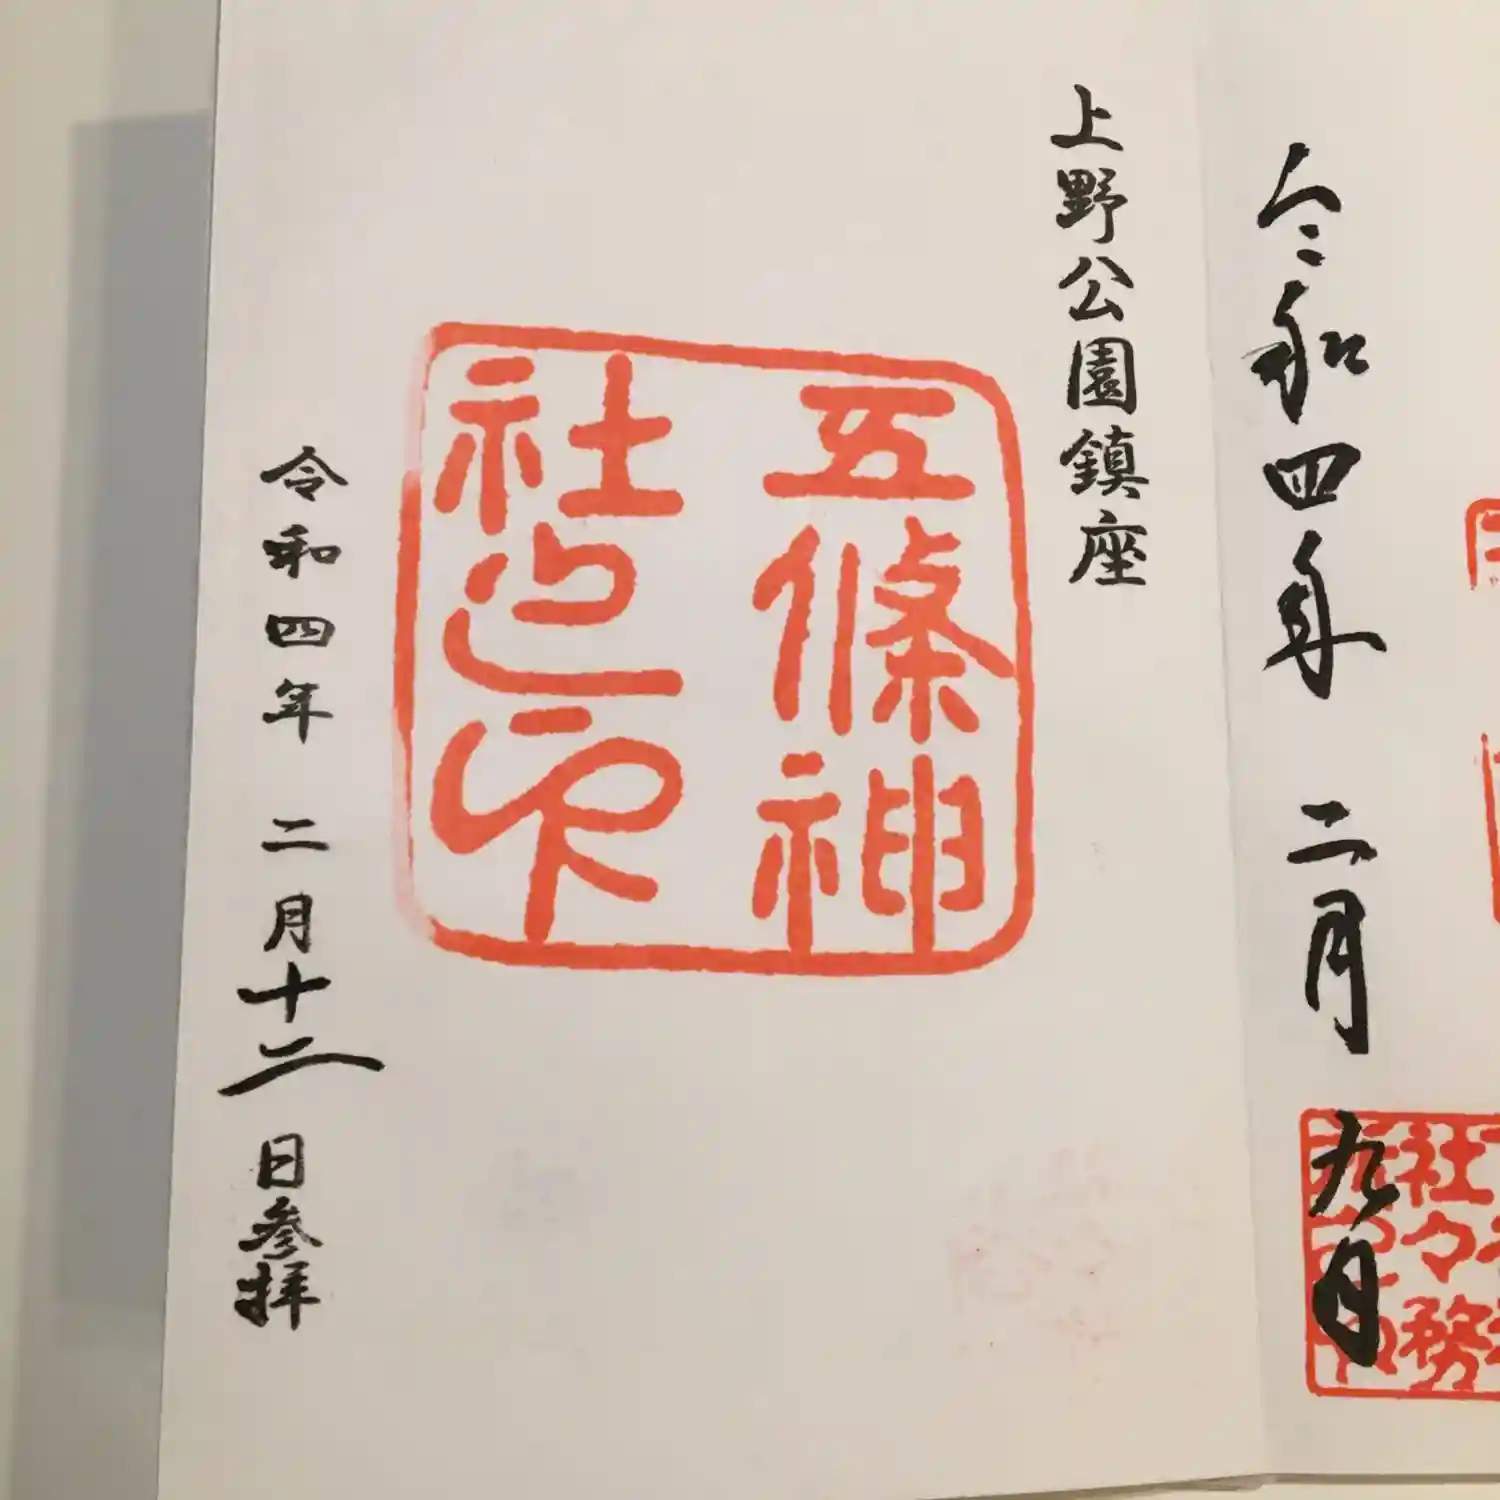 令和四年 二月 九日
社務
上野公園鎮座
五條神
社之印
令和四年 二月十二日参拝